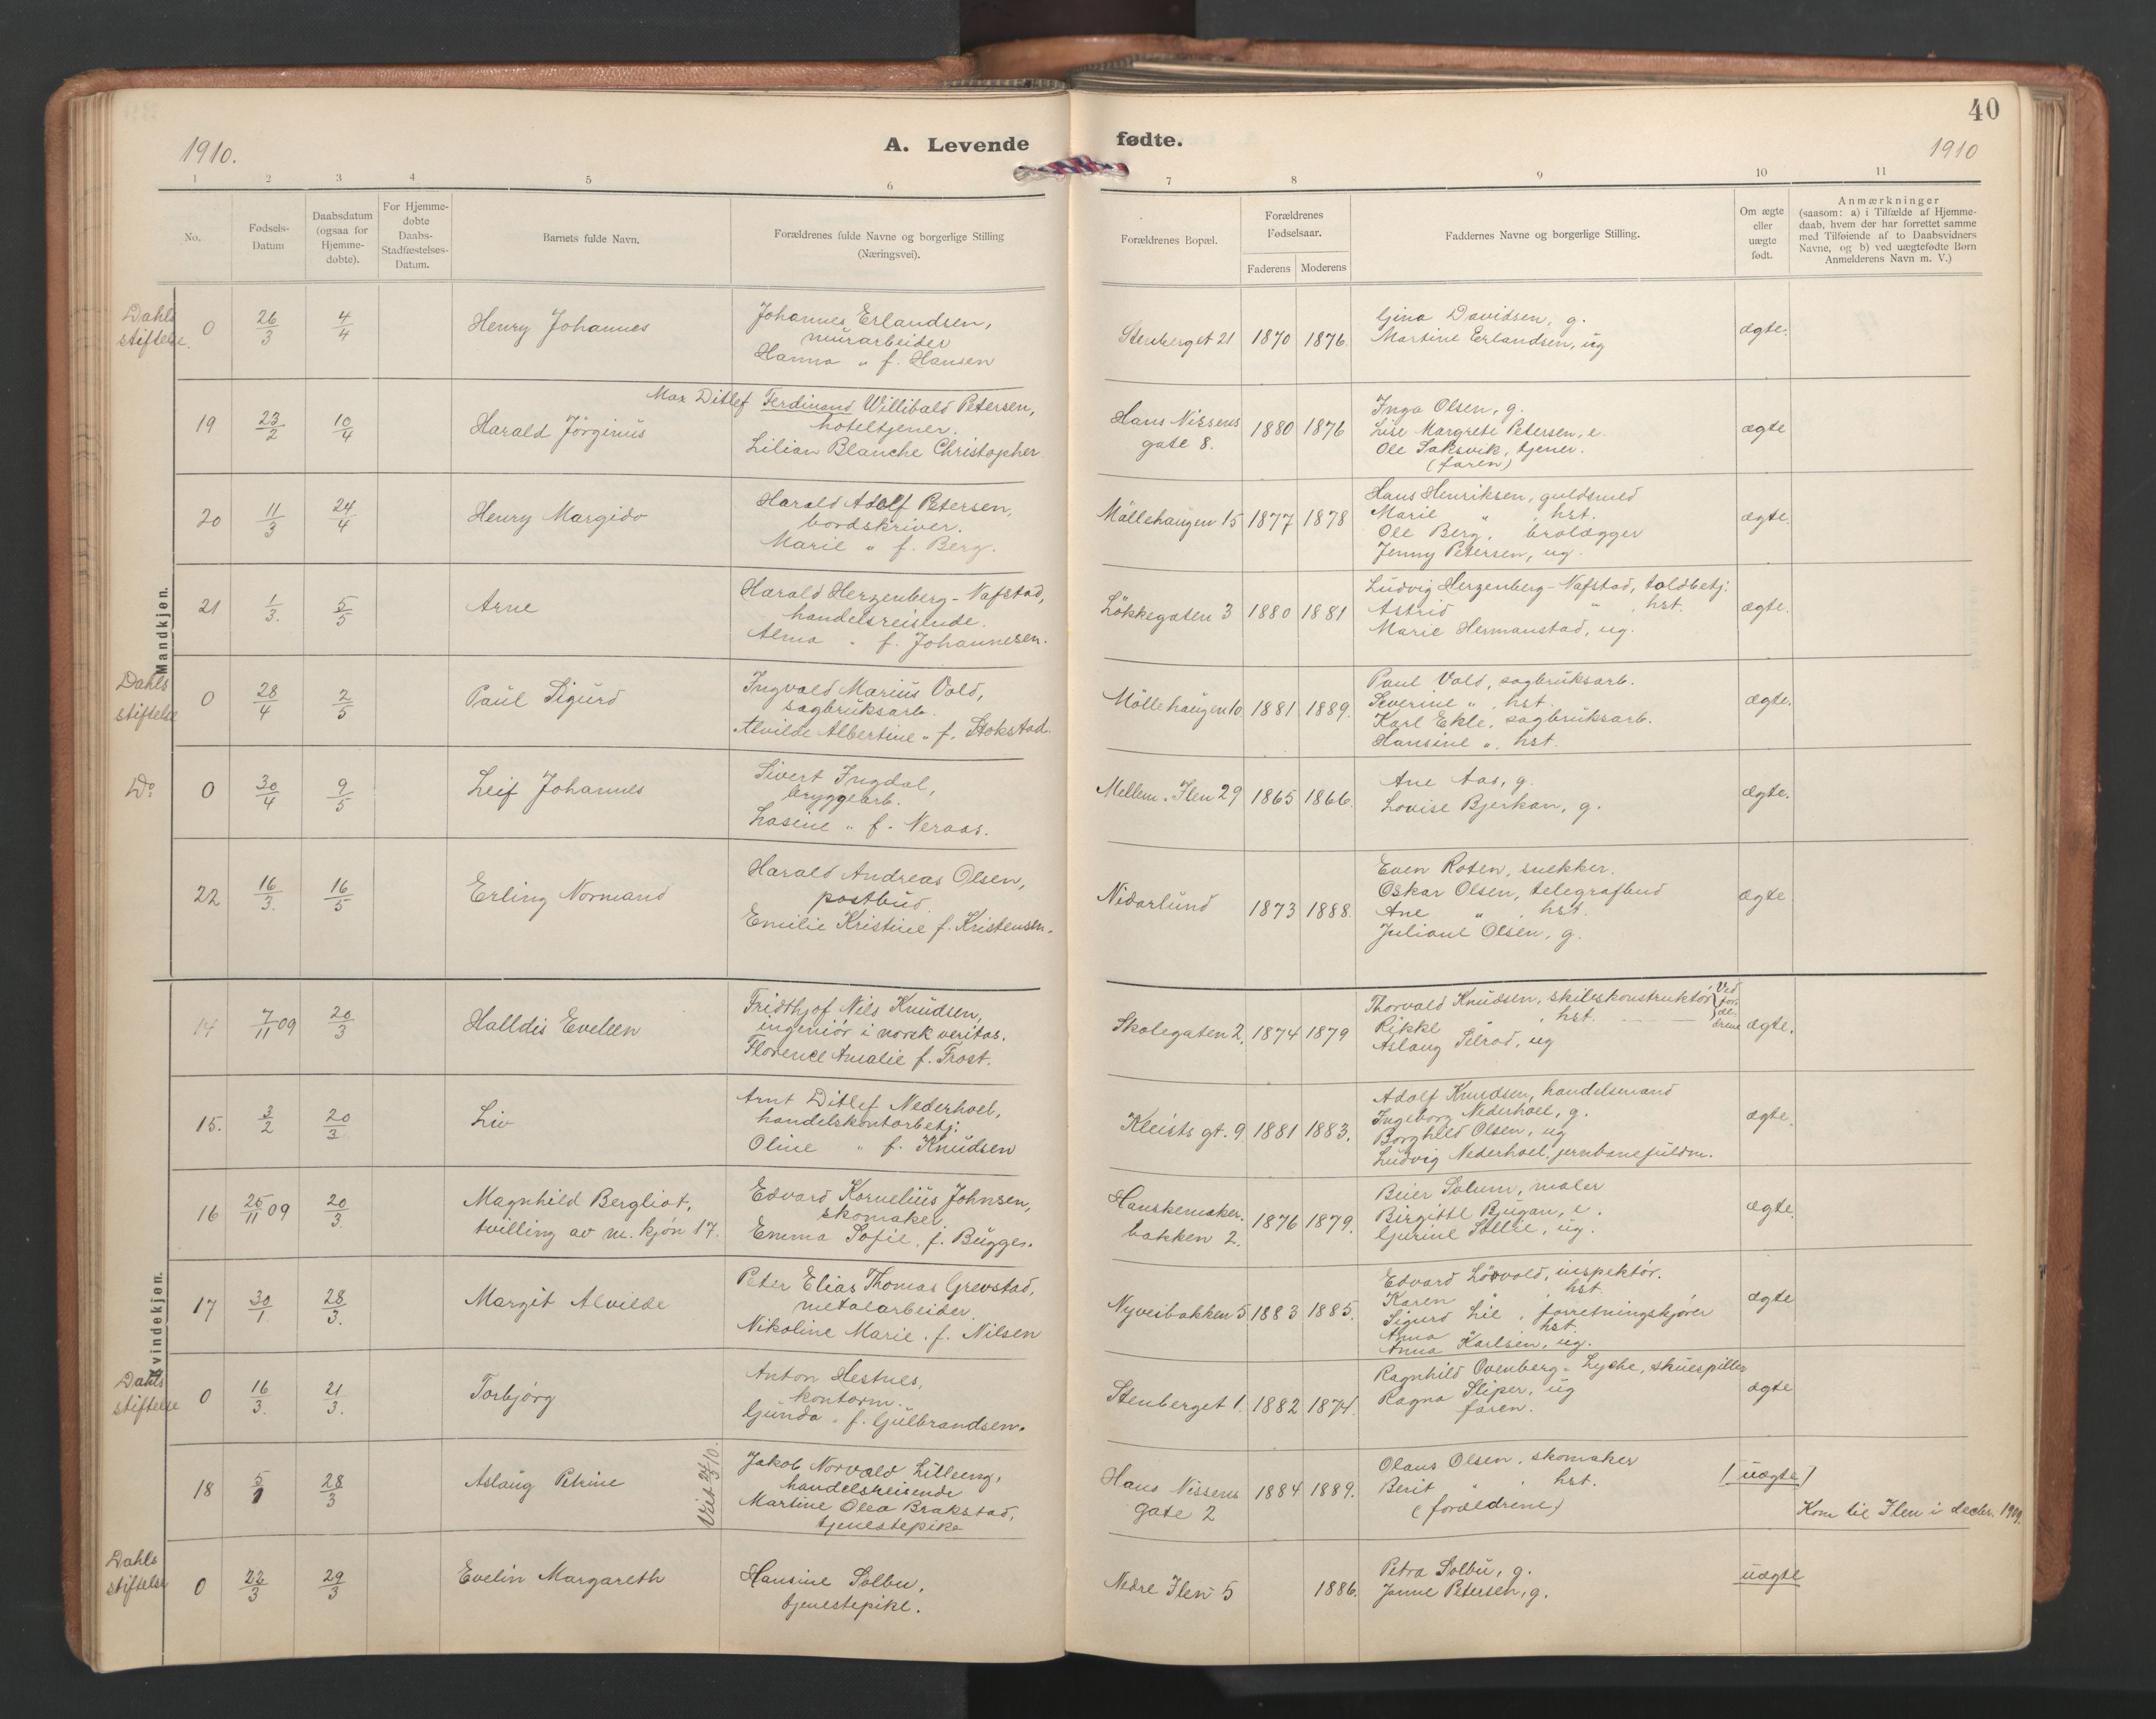 40
1910.
A. Levende fødte.
1910
1 2 3 4 5 6 7 8 9 10 11
No.
Fødsels-
Datum
Daabsdatum
(ogsaa for
Hjemme-
døbte).
For Hjemme-
døbte
Daabs-
Stadfæstelses-
Datum.
Barnets fulde Navn.
Forældrenes fulde Navne og borgerlige Stilling
(Næringsvei).
Forældrenes Bopæl.
Forældrenes
Fødselsaar.
Faderens Moderens
Faddernes Navne og borgerlige Stilling.
Om ægte
eller
uægte
født.
Anmærkninger
(saasom: a) i Tilfælde af Hjemme-
daab, hvem der har forrettet samme
med Tilføiende af to Daabsvidners
Navne, og b) ved uægtefødte Børn
Anmelderens Navn m. V.)
Mandkjøn.
Dahls
stiftelse.
0 26/3 4/4 Henry Johannes
Johannes Erlandsen,
murarbeider
Hanna " f. Hansen
Stenberget 21 1870 1876.
Gina Davidsen, g.
Martine Erlandsen, ug
ægte.
19 23/2 10/4 Harald Jörginus
Max Ditlef Ferdinand Willibald Petersen,
hoteltjener.
Lilian Blanche Christopher
Hans Nissens
gate 8.
1880 1876
Inga Olsen, g.
Lise Margrete Petersen, e.
Ole Saksvik, tjener.
(faren)
ægte
20 11/3 24/4 Henry Margido
Harald Adolf Petersen,
bordskriver.
Marie " f. Berg.
Möllehaugen 15 1877 1878
Hans Henriksen, guldsmed
Marie " , hst.
Ole Berg, brolægger
Jenny Petersen, ug.
ægte.
21 1/3. 5/5 Arne
Harald Herzenberg-Nafstad,
handelsreisende.
Alma " f. Johannesen.
Lökkegaten 3 1880 1881
Ludvig Herzenberg-Nafstad, toldbetj.
Astrid " , hst.
Marie Hermanstad, ug.
ægte.
Dahls
stiftelse
0 28/4 2/5 Paul Sigurd
Ingvald Marius Vold,
sagbruksarb.
Alvilde Albertine " f. Stokstad.
Möllehaugen 10 1881 1889.
Paul Vold, sagbruksarb.
Severine " , hst.
Karl Ekle, sagbruksarb.
Hansine ", hst.
ægte.
Do
0 30/4 9/5 Leif Johannes
Sivert Ingdal,
bryggearb.
Lasine " f. Neraas.
Mellem. Ilen 29 1865 1866.
Ane Aas, g.
Lovise Bjerkan, g.
ægte.
22 16/3. 16/5 Erling Normand
Harald Andreas Olsen,
postbud.
Emilie Kristine f. Kristensen.
Nidarlund 1873 1888.
Even Roten, snekker.
Oskar Olsen, telegrafbud
Ane " , hst.
Juliane Olsen, g.
ægte
Kvindekjøn.
14 7/11 09 20/3 Halldis Eveleen
Fridthjof Nils Knudsen,
ingeniör i norsk veritas.
Florence Amalie f. Frost.
Skolegaten 2. 1874 1879
Thorvald Knudsen, skibskonstruktör
Rikke " , hst.
Aslaug Selrod, ug
Ved
for-
æl-
drene
ægte.
15. 3/2 20/3 Liv
Arnt Ditlef Nederhoel,
handelskontorbetj.
Oline " f. Knudsen
Kleists gt. 9 1881 1883.
Adolf Knudsen, handelsmand
Ingeborg Nederhoel, g.
Borghild Olsen, ug
Ludvig Nederhoel, jernbanefuldm.
ægte.
16 25/11 09 20/3. Magnhild Bergliot,
tvilling av m. kjön 17.
Edvard Kornelius Johnsen,
skomaker.
Emma Sofie, f. Bugges.
Hanskemaker.
bakken 2.
1876 1879.
Beier Solum, maler
Birgitte Bjugan, e.
Gurine Sollie, ug.
ægte.
17 30/1 28/3. Margit Alvilde
Peter Elias Thomas Grevstad,
metalarbeider.
Nikoline Marie. f. Nilsen
Nyveibakken 5 1883 1885.
Edvard Lövold, inspektör.
Karen " , hst.
Sigurd Lie, forretningskjörer
Anna hst.
Anna Karlsen, ug.
ægte
Dahls
stiftelse
0 16/3. 21/3. Torbjörg
Anton Hestnes,
kontorm.
Gunda " f. Gulbrandsen.
Stenberget 1. 1882 1874.
Ragnhild Ovenberg-Lyche, skuespiller
Ragna Sliper, ug
faren.
ægte
18 5/1 28/3 Aslaug Petrine
Viet 24/3 10.
Jakob Norvald Lilleeng,
handelsreisende
Martine Olea Brakstad,
tjenestepike
Hans Nissens
gate 2
1884 1889.
Olaus Olsen, skomaker
Berit " , hst.
(forældrene)
[uægte]
Kom til Ilen i decbr. 1909.
Dahls
stiftelse
0 22/3 29/3 Evelin Margareth
Hansine Solbu,
tjenestepike.
Nedre Ilen 5 1886.
Petra Solbu, g.
Janne Petersen, g.
uægte